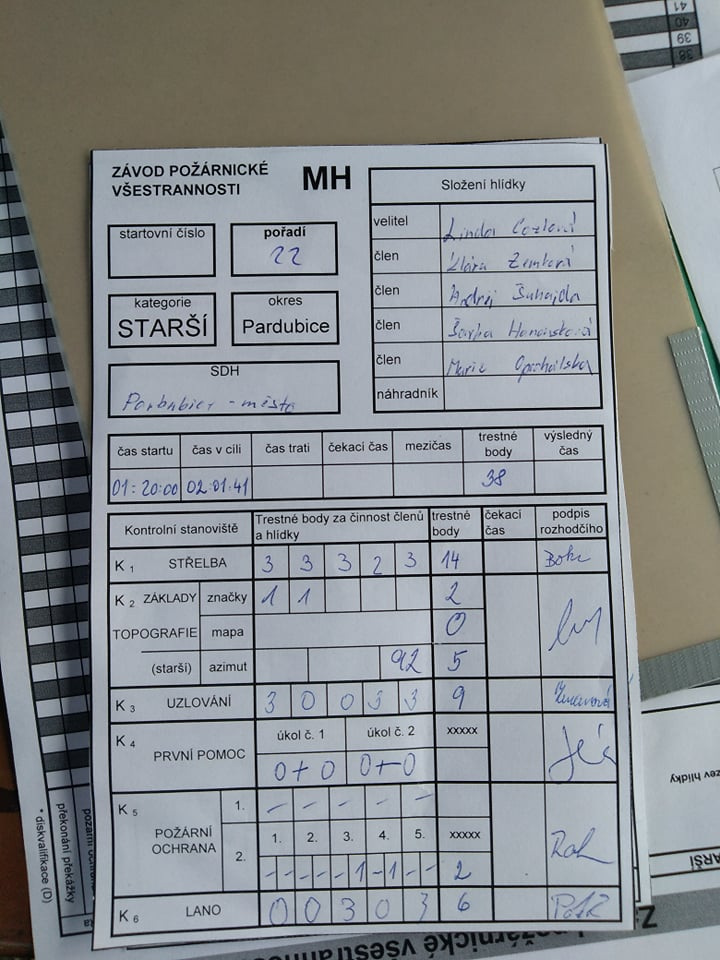 ZÁVOD POŽÁRNICKÉ
VŠESTRANNOSTI
MH
startovní číslo
pořadí
22
kategorie
STARŠÍ
okres
Pardubice
SDH
Pardubice - město
Složení hlídky
velitel Linda
člen Klára Zemková
člen Andrej Šuhajda
člen
člen Marie
náhradník
čas startu čas v cíli čas trati čekací čas mezičas trestné body výsledný čas
01:20:00 02:01:41 38
Kontrolní stanoviště Trestné body za činnost členů a hlídky trestné body čekací čas podpis rozhodčího
K 1 STŘELBA 3 3 3 2 3 14
K 2 ZÁKLADY TOPOGRAFIE (starší)
značky 1 1 2
mapa 0
azimut 92 5
K 3 UZLOVÁNÍ 3 0 0 3 3 9
K 4 PRVNÍ POMOC
úkol č. 1 úkol č. 2 xxxxx
0+0 0+0
K 5 POŽÁRNÍ OCHRANA
1. - - - - -
2. 1. 2. 3. 4. 5. xxxxx
- - - - - 1 - 1 - - 2
K 6 LANO 0 0 3 0 3 6
41
40
39
38
* diskvalifikace (D)
překonání překážky